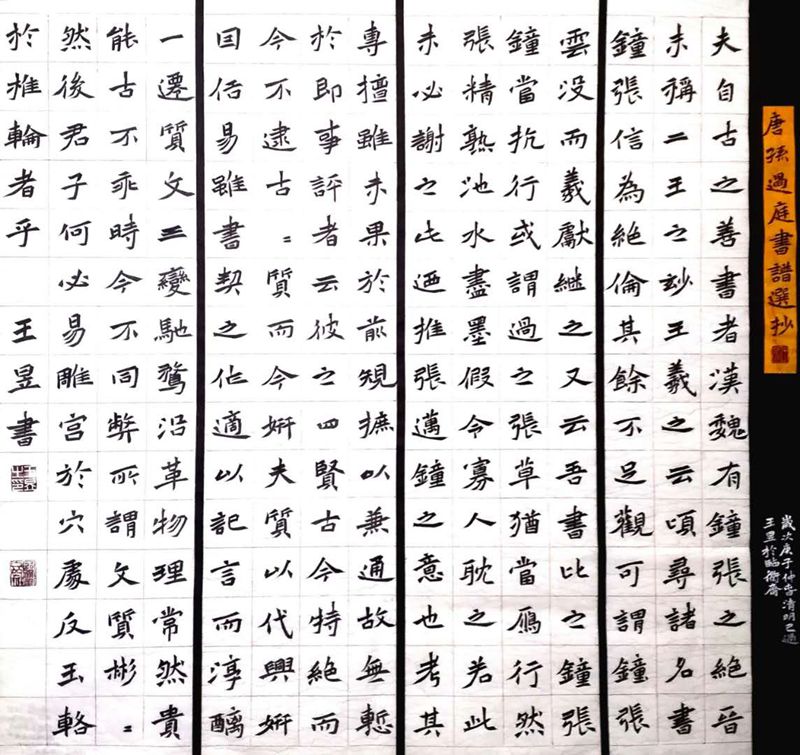 唐孫過庭書譜選抄
歲次庚子仲春清明已過
王昱於臨衡齋
夫自古之善書者漢魏有鐘張之絕晉
末稱二王之妙王羲之云頃尋諸名書
鐘張信為絕倫其餘不足觀可謂鐘張
雲沒而羲獻繼之又云吾書比之鐘張
鐘當抗行或謂過之張草猶當鴈行然
張精熟池水盡墨假令寡人耽之若此
未必謝之此迺推張邁鐘之意也考其
專擅雖未果於前規摭以兼通故無慙
於即事評者云彼之四賢古今特絕而
今不逮古〻質而今妍夫質以代興妍
因俗易雖書契之作適以記言而淳醨
一遷質文三變馳騖沿革物理常然貴
能古不乖時今不同弊所謂文質彬〻
然後君子何必易雕宮於穴處反玉輅
於椎輪者乎 王昱書